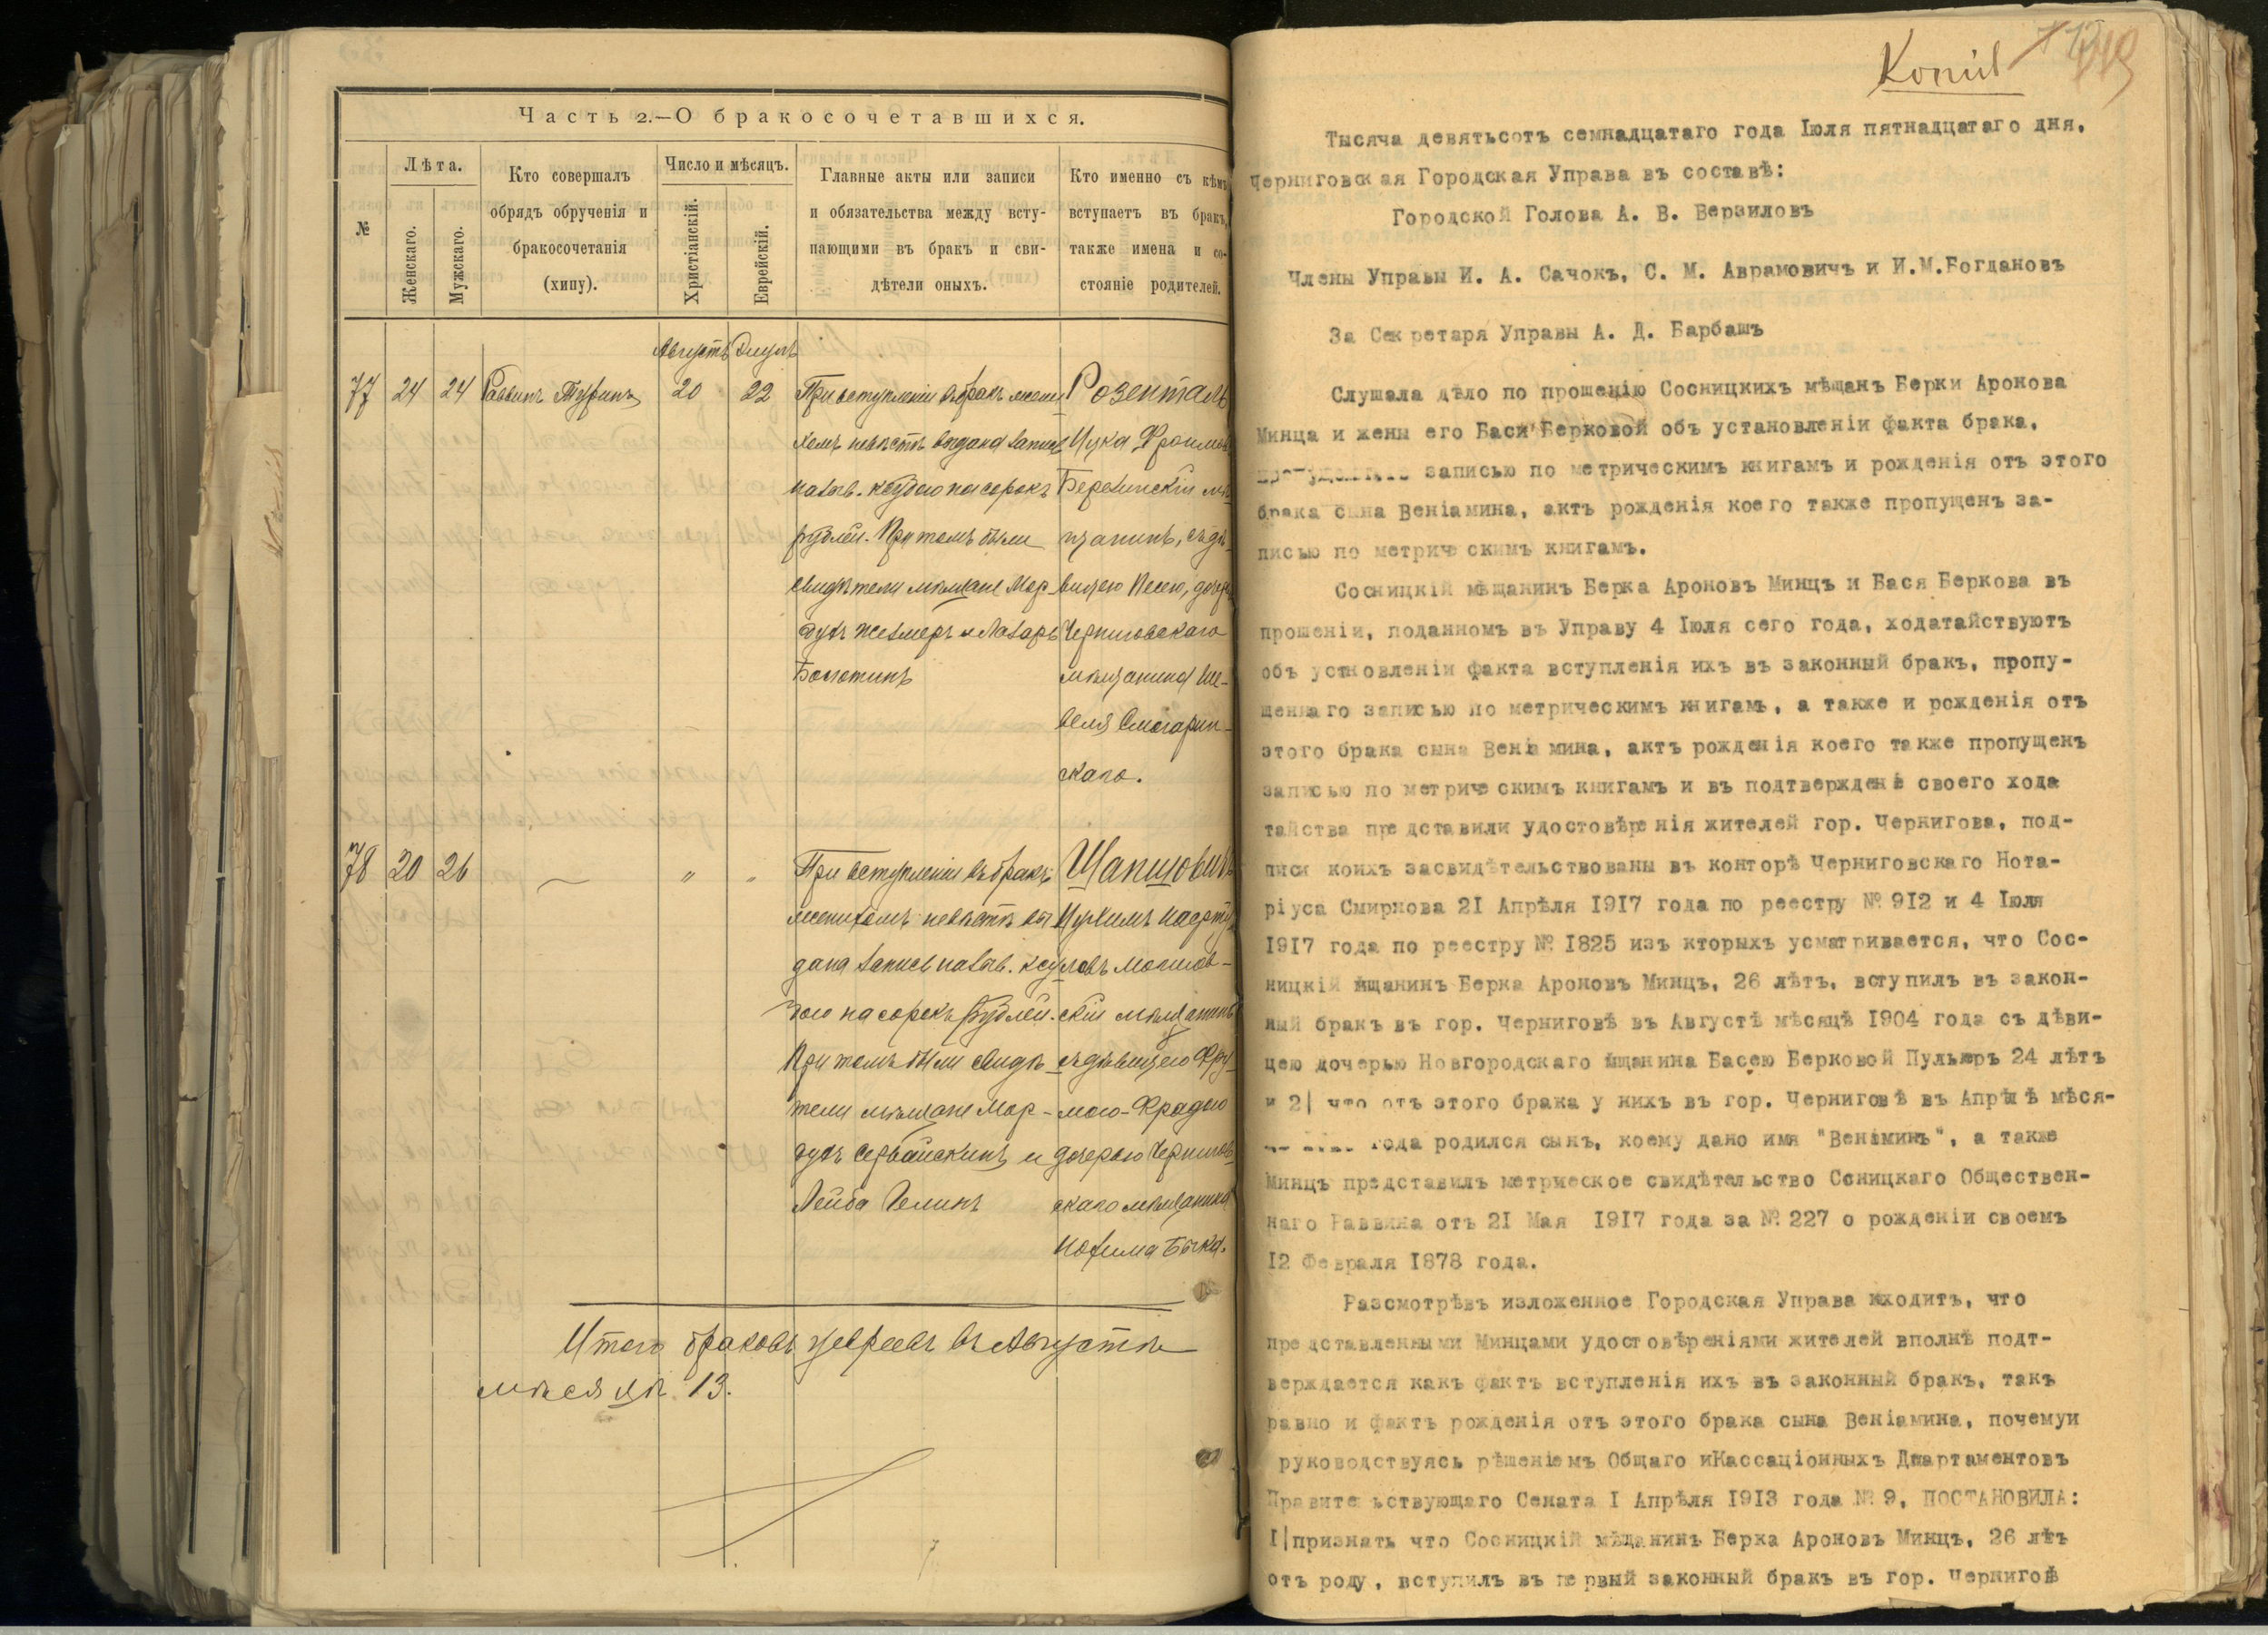 Часть 2.—О бракосочетавшихся.
№
Лѣта.
Женскаго.
Мужскаго.
Кто совершалъ
обрядъ обрученія и
бракосочетанія
(хипу).
Число и мѣсяцъ.
Христіанскій.
Еврейскій.
Главные акты или записи
и обязательства между всту-
пающими въ бракъ и сви-
дѣтели оныхъ.
Кто именно съ кѣмъ
вступаетъ въ бракъ,
также имена и со-
стояніе родителей.
Августъ Элулъ
77 24 24 Раввинъ Туринъ 20 22
При вступленіи въ бракъ жени
хомъ невѣстѣ выдана запись
назыв. ксубою на сорокъ
рублей. При томъ были
свидѣтели мѣщане Мор-
духъ Жезмеръ и Лазарь
Болотинъ
Розенталь
Ицка Фроимов
Березинскій мѣ
щанинъ, съ дѣ-
вицею Песею, дочерью
Черниговскаго
мѣщанина Ше-
веля Смогарин-
скаго.
78 20 26 — " "
При вступленіи въ бракъ
женихомъ невѣстѣ вы
дана запись назыв. ксу
бою на сорокъ рублей.
При томъ были свидѣ-
тели мѣщане Мор-
духъ Сервайскинъ и
Лейба Гелинъ
Шапшовичъ
скій мѣщанинъ
съ дѣвицею Фру-
мою-Фрадою
дочерью Чернигов
скаго мѣщанина
Нохима Быка.
Итого браковъ у евреевъ въ Августѣ
мѣсяцѣ 13.
Копія
Тысяча девятьсотъ семнадцатаго года Іюля пятнадцатаго дня,
Черниговская Городская Управа въ составѣ:
Городской Голова А. В. Верзиловъ
Члены Управы И. А. Сачокъ, С. М. Аврамовичъ и И.М.Богдановъ
За Секретаря Управы А. Д. Барбашъ
Слушала дѣло по прошенію Сосницкихъ мѣщанъ Берки Аронова
Минца и жены его Баси Берковой объ установленіи факта брака,
записью по метрическимъ книгамъ и рожденія отъ этого
брака сына Веніамина, актъ рожденія коего также пропущен за-
писью по метрическимъ книгамъ.
Сосницкій мѣщанинъ Берка Ароновъ Минцъ и Бася Беркова въ
прошеніи, поданномъ въ Управу 4 Іюля сего года, ходатайствуютъ
объ устновленіи факта вступленія ихъ въ законный бракъ, пропу-
щеннаго записью по метрическимъ книгамъ, а также и рожденія отъ
этого брака сына Веніамина, актъ рожденія коего также пропущенъ
записью по метрическимъ книгамъ и въ подтвержденіе своего хода
тайства представили удостовѣренія жителей гор. Чернигова, под-
писи коихъ засвидѣтельствованы въ конторѣ Черниговскаго Нота-
ріуса Смирнова 21 Апрѣля 1917 года по реестру № 912 и 4 Іюля
1917 года по реестру № 1825 изъ кторыхъ усматривается, что Сос-
ницкій мщанинъ Берка Ароновъ Минцъ, 26 лѣтъ, вступилъ въ закон-
ный бракъ въ гор. Черниговѣ въ Августѣ мѣсяцѣ 1904 года съ дѣви-
цею дочерью Новгородскаго мщанина Басею Берковой Пульнеръ 24 лѣтъ
и 2| что отъ этого брака у нихъ въ гор. Черниговѣ въ Апрѣлѣ мѣся-
года родился сынъ, коему дано имя "Веніминъ", а также
Минцъ представилъ метриеское свидѣтельство Ссницкаго Обществен-
наго Раввина отъ 21 Мая 1917 года за № 227 о рожденіи своемъ
12 Февраля 1878 года.
Разсмотрѣвъ изложенное Городская Управа находитъ, что
представленными Минцами удостовѣреніями жителей вполнѣ подт-
верждается какъ фактъ вступленія ихъ въ законный бракъ, такъ
равно и фактъ рожденія отъ этого брака сына Веніамина, почемуи
руководствуясь рѣшеніемъ Общаго иКассаціонныхъ Дпартаментовъ
Правительствующаго Сената I Апрѣля 1913 года № 9, ПОСТАНОВИЛА:
I|признать что Сосницкій мѣщанинъ Берка Ароновъ Минцъ, 26 лѣтъ
отъ роду, вступилъ въ первый законный бракъ въ гор. Черниговѣ